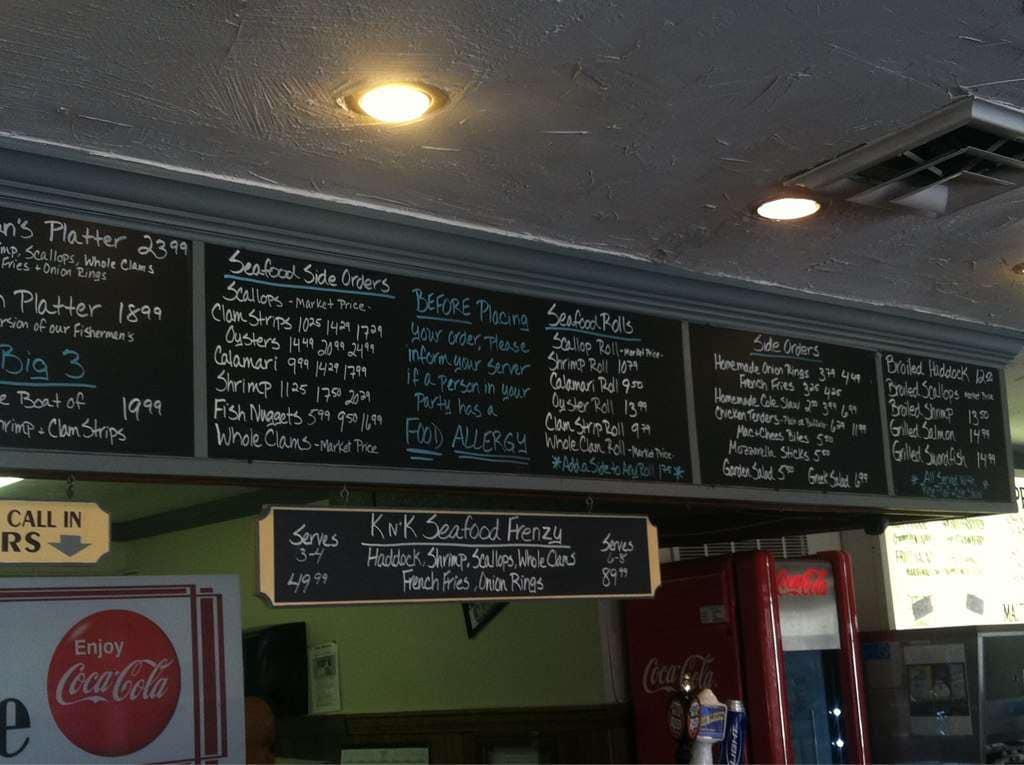 n's Platter 23.99
mp, Scallops, Whole Clams
Fries + Onion Rings
Platter 18.99
rsion of our Fishermen's
Big 3
e Boat of 19.99
hrimp + Clam Strips
Seafood Side Orders
Scallops - Market Price -
Clam Strips 10.25 14.29 17.29
Oysters 14.49 20.99 24.99
Calamari 9.99 14.29 17.99
Shrimp 11.25 17.50 20.29
Fish Nuggets 5.99 9.50 11.99
Whole Clams - Market Price
BEFORE Placing
your order, Please
inform your server
if a person in your
Party has a
FOOD ALLERGY
Seafood Rolls
Scallop Roll - Market Price -
Shrimp Roll 10.79
Calamari Roll 9.50
Oyster Roll 13.99
Clam Strip Roll 9.79
Whole Clam Roll - Market Price -
*Add a Side to Any Roll 1.75*
Side Orders
Homemade Onion Rings 3.79 4.99
French Fries 3.25 4.25
Homemade Cole Slaw 2.00 3.99 6.99
Chicken Tenders 6.79 11.99
Mac + Chees Bites 5.50
Mozzarella Sticks 5.50
Garden Salad 5.00 Greek Salad 6.99
Broiled Haddock 12.50
Broiled Scallops Market Price
Broiled Shrimp 13.50
Grilled Salmon 14.99
Grilled Swordfish 14.99
All Served With
CALL IN
RS
KN'K Seafood Frenzy
Serves
3-4
49.99
Haddock, Shrimp, Scallops, Whole Clams
French Fries, Onion Rings
Serves
6-8
89.99
Enjoy
Coca-Cola
e
Coca-Cola
Coca-Cola
LIGHT